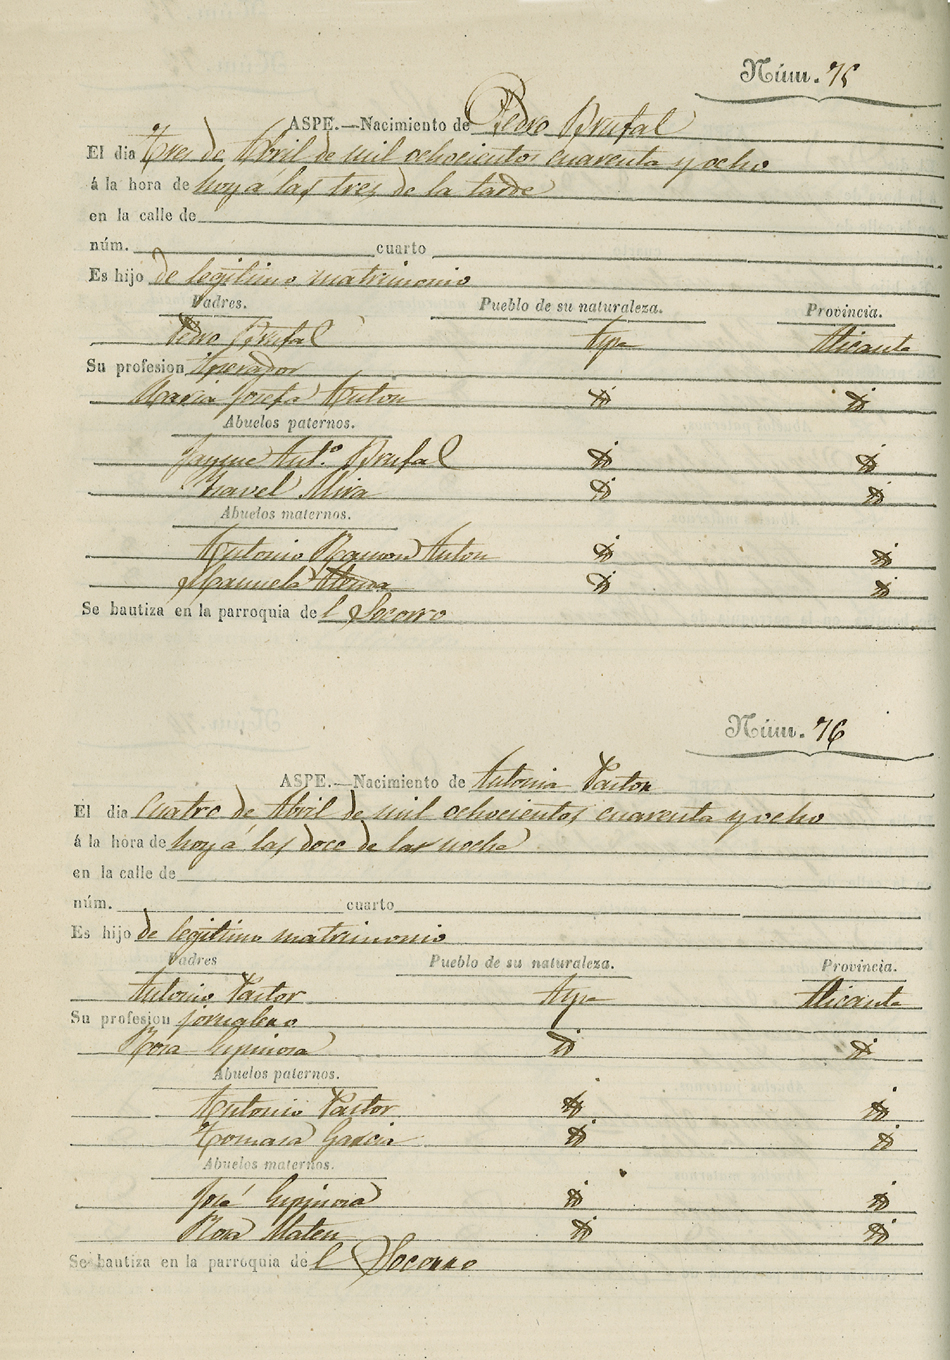 Núm. 75
ASPE.—Nacimiento de Pedro Brufal
El dia Tres de Abril de mil ochocientos cuarenta y ocho
á la hora de hoy á las tres de la tarde
en la calle de
núm. cuarto
Es hijo de legitimo matrimonio
Padres. Pueblo de su naturaleza. Provincia.
Pedro Brufal Aspe Alicante
Su profesion
Maria Josefa Anton
Abuelos paternos.
Jayme Ant.º Brufal
Mira
Abuelos maternos.
Antonio Ramon Anton
Manuela
Se bautiza en la parroquia del Socorro
Núm. 76
ASPE.—Nacimiento de Antonia Pastor
El dia Cuatro de Abril de mil ochocientos cuarenta y ocho
á la hora de hoy á las doce de la noche
en la calle de
núm. cuarto
Es hijo de legitimo matrimonio
Padres Pueblo de su naturaleza. Provincia.
Antonio Pastor Aspe Alicante
Su profesion jornalero
Rosa Espinosa
Abuelos paternos.
Antonio Pastor
Tomasa Garcia
Abuelos maternos.
José Espinosa
Rosa Mateu
Se bautiza en la parroquia de l Socorro